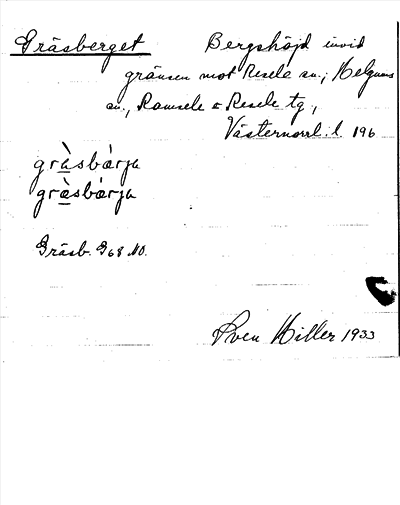 Gräsberget Bergshöjd invid
gränsen mot Resele sn.; Helgums
sn., Ramsele o Resele tg.,
Västernorrl. l. 196
gràsbárju
græ̀sbárju
Gräsb. G68 NO.
Sven Hiller 1933